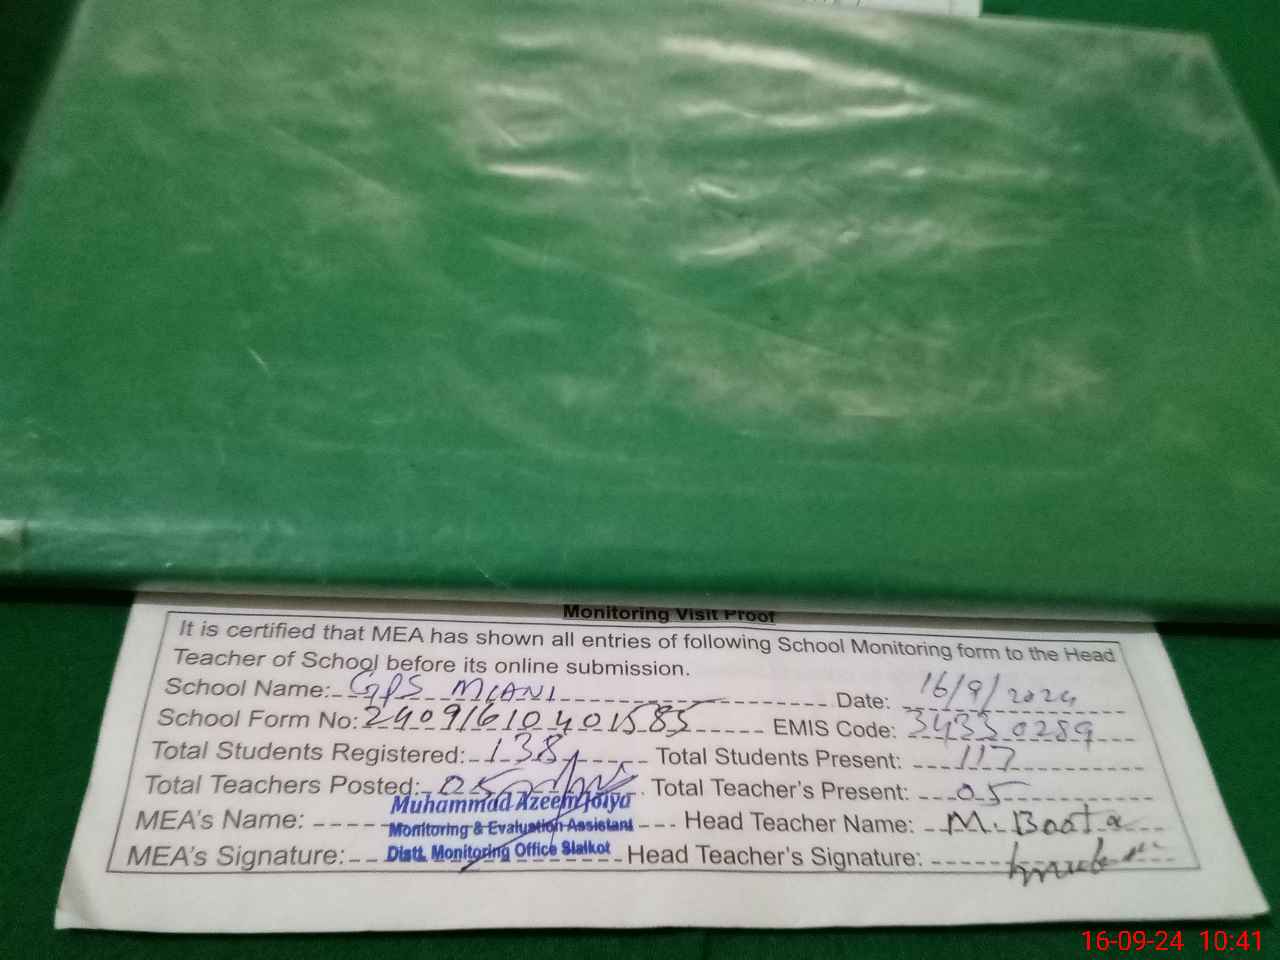 Monitoring Visit Proof
It is certified that MEA has shown all entries of following School Monitoring form to the Head
Teacher of School before its online submission.
School Name: GPS MIANI Date: 16/9/2024
School Form No: 2409161040 1585 EMIS Code: 34330289
Total Students Registered: 138 Total Students Present: 117
Total Teachers Posted: 05 Total Teacher's Present: 05
Muhammad Azeem Joiya
MEA's Name: Monitoring & Evaluation Assistant Head Teacher Name: M. Boota
MEA's Signature: Distt. Monitoring Office Sialkot Head Teacher's Signature:
16-09-24 10:41